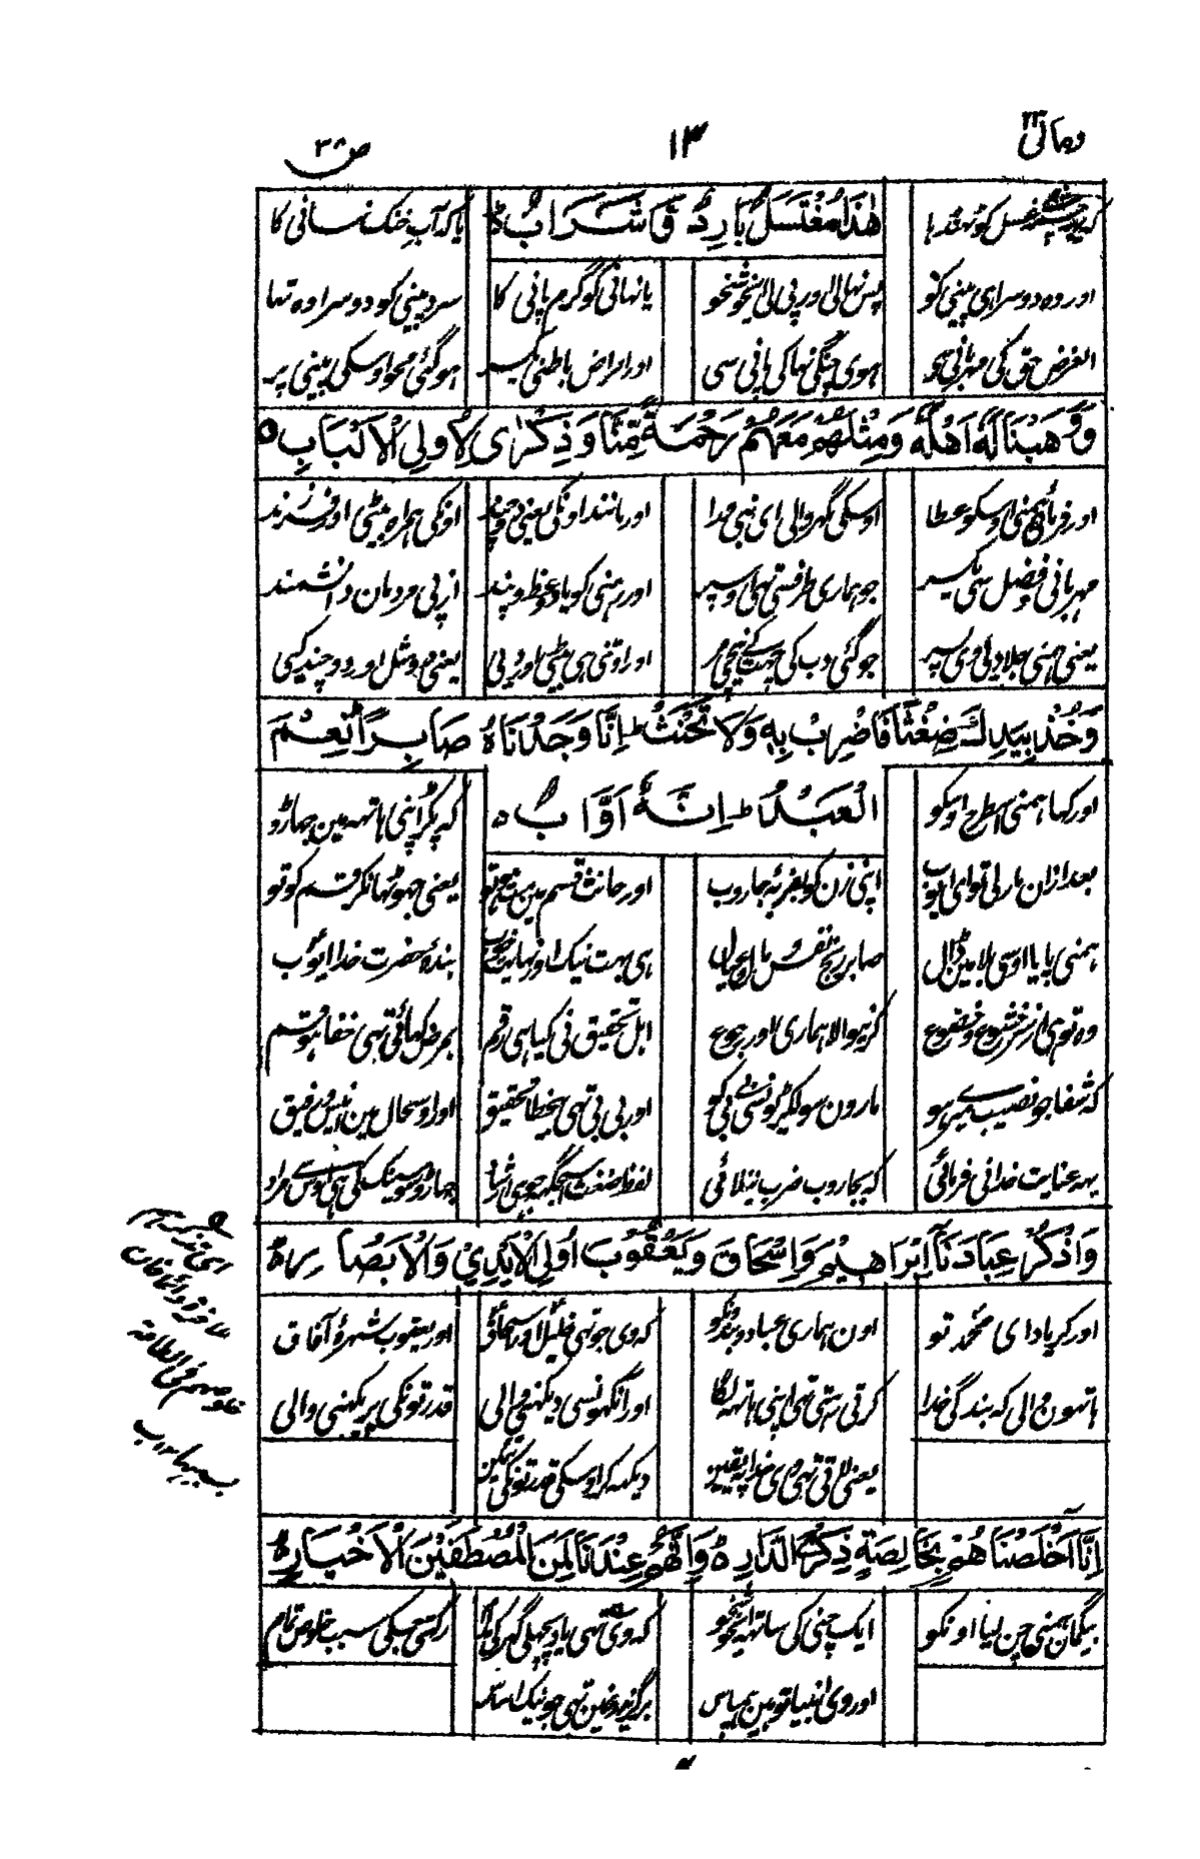 ومالی ٢٣
١٣
ص ٣٨
کہ یہہ چشمہ غسل کو تہنڈہا
هٰذَا مُغْتَسَلٌ بَارِدٌ وَّ شَرَابٌ
یا کہ آب خنک نسانی کا
اور وہ دوسرا ہی پینی کو پس نہالی اور پی لی یانہانی کو گرم پانی کا سرد پینی کو دوسرا وہ تہا
الغرض حق کی مہربانی ہو ہوی چنگی نہا کی پانی سی اور امراض باطنی یکسر ہو گئی محو اوسکی پینی پر
وَوَهَبْنَا لَهٗ اَهْلَهٗ وَمِثْلَهُمْ مَعَهُمْ رَحْمَةً مِّنَّا وَذِكْرٰى لِاُولِى الْاَلْبَابِ ٥
اور فرمائی ہمنی اوسکو عطا اوسکی گہروالی ای نبی خدا اور مانند اونکی یعنی دوچند اونکی ہمراہ بیٹی اور فرزند
مہربانی و فضل سی یکسر جو ہماری طرف سی تہی اوسپر اور ہمنی کو یاد وعظ و پند از پی مردمان دانشمند
یعنی ہمنی جلا دی وی سپر جو گئی دب کی چہت کے نیچی مر اور اوتنی ہی بیٹی اور دی یعنی دو مثل اور دوچند کیی
وَخُذْ بِيَدِكَ ضِغْثًا فَاضْرِبْ بِهٖ وَلَا تَحْنَثْ ط اِنَّا وَجَدْنَاهُ صَابِرًا نِعْمَ
اور کہا ہمنی اسطرح اوسکو
الْعَبْدُ ط اِنَّهٗ اَوَّابٌ ٥
کہ پکڑ اپنی ہاتہہ مین جہاڑو
بعد ازان مارلی تو ای ایوب اپنی زن کو بضربہ جاروب اور حانث قسم مین مت ہو تو یعنی جہوٹہا نکر قسم کو تو
ہمنی پایا اوسی بلا مین ڈال صابر رنج نفس و مال و عیال ہی بہت نیک اور نہایت خوب بندہ حضرت خدا ایوب
وہ تو ہی از رہ خشوع و خضوع کرنیوالا ہماری اور رجوع اہل تحقیق نی کیا ہی رقم بمرض کہائی تہی خفا ہو قسم
کہ شفا جو نصیب میری ہو مارون سو لکڑیونسی بی بی کو اور بی بی تہی بیخطا تحقیق اور اوسحال مین انیس و رفیق
یہہ عنایت خدانی فرمائی کہ بجاروب ضرب بتلائی لفظ ضغث اسجگہہ جو ہی ارشاد جہاڑو سو سینک کی ہی اوس سے مراد
وَاذْكُرْ عِبَادَنَا اِبْرَاهِيْمَ وَاِسْحَاقَ وَيَعْقُوْبَ اُولِى الْاَيْدِيْ وَالْاَبْصَارِ ٥
اور کر یاد ای محمد تو اون ہماری عباد و بندونکو کہ وی جو تہی خلیل اور اسحاق اور یعقوب شہرۂ آفاق
ہاتہون والی کہ بندگی خدا کرتی رہتی تہی اپنی ہاتہہ لگا اور آنکہونسی دیکہنی والی قدرتونکی پریکہنی والی
دیکہہ کر اوسکی قدرتونکی تئین
اِنَّا اَخْلَصْنَاهُمْ بِخَالِصَةٍ ذِكْرَى الدَّارِ ٥ وَاِنَّهُمْ عِنْدَنَا لَمِنَ الْمُصْطَفَيْنَ الْاَخْيَارِ ٥
بیگمان ہمنی چن لیا اونکو ایک چنی کی ساتہہ کہ وی تہی یاد پچہلی گہر کی رکہتی جسکی سبب خلوص تمام
اور وی انبیا تو ہین ہمپاس برگزیدونمین تہی جو نیک اساس